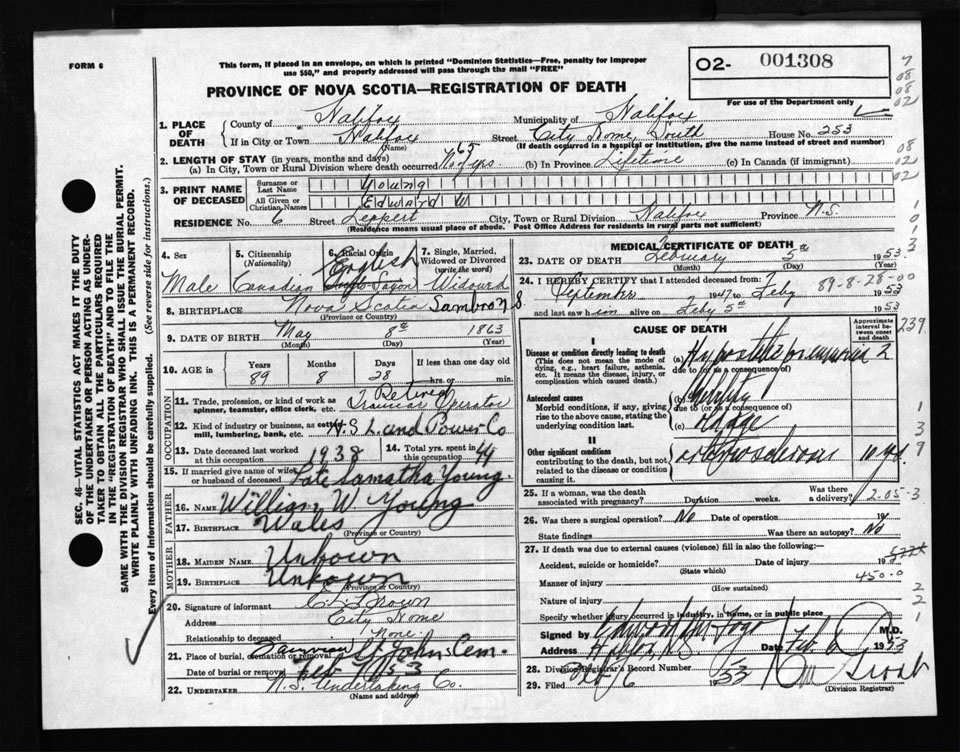 FORM 6
This form, if placed in an envelope, on which is printed "Dominion Statistics—Free, penalty for improper
use $50," and properly addressed will pass through the mail "FREE"
O2- 001308
PROVINCE OF NOVA SCOTIA—REGISTRATION OF DEATH
For use of the Department only
1. PLACE OF DEATH
County of Halifax Municipality of Halifax
If in City or Town Halifax Street City Home, South House No. 253
(Name) (If death occurred in a hospital or institution, give the name instead of street and number)
2. LENGTH OF STAY (in years, months and days)
(a) In City, Town or Rural Division where death occurred 65 yrs (b) In Province Lifetime (c) In Canada (if immigrant)
3. PRINT NAME OF DECEASED
Surname or Last Name Young
All Given or Christian Names Edward W
RESIDENCE No. 6 Street Leppert City, Town or Rural Division Halifax Province N.S.
(Residence means usual place of abode. Post Office Address for residents in rural parts not sufficient)
4. Sex
Male
5. Citizenship (Nationality)
Canadian
6. Racial Origin
English
Anglo-Saxon
7. Single, Married, Widowed or Divorced (write the word)
Widowed
8. BIRTHPLACE Nova Scotia Sambro N.S.
(Province or Country)
9. DATE OF BIRTH May 8th 1863
(Month) (Day) (Year)
10. AGE in Years Months Days If less than one day old
89 8 28 hrs. or min.
11. Trade, profession, or kind of work as spinner, teamster, office clerk, etc. Retired
Operator
12. Kind of industry or business, as cotton mill, lumbering, bank, etc. N.S. L. and Power Co
13. Date deceased last worked at this occupation 1938
14. Total yrs. spent in this occupation 44
15. If married give name of wife or husband of deceased Late Samatha Young
16. NAME William W Young
17. BIRTHPLACE Wales
(Province or Country)
18. MAIDEN NAME Unkown
19. BIRTHPLACE Unkown
(Province or Country)
20. Signature of informant Brown
Address City Home
Relationship to deceased None
21. Place of burial, cremation or removal Fairview St John Cem.
Date of burial or removal Feb 53
22. UNDERTAKER N.S. Undertaking Co.
(Name and address)
OCCUPATION
FATHER
MOTHER
MEDICAL CERTIFICATE OF DEATH
23. DATE OF DEATH February 5th 1953
(Month) (Day) (Year)
24. I HEREBY CERTIFY that I attended deceased from
September 1947 to Feby 1953
and last saw him alive on Feby 5th 1953
89-8-28-00
CAUSE OF DEATH
Approximate interval between onset and death
I
Disease or condition directly leading to death
(This does not mean the mode of dying, e.g., heart failure, asthenia, etc. It means the disease, injury, or complication which caused death.)
(a) Hypostatic pneumonia 2
due to (or as a consequence of)
Antecedent causes
Morbid conditions, if any, giving rise to the above cause, stating the underlying condition last.
(b) Senility
due to (or as a consequence of)
(c) old age
II
Other significant conditions
contributing to the death, but not related to the disease or condition causing it.
arteriosclerosis 10 yrs
25. If a woman, was the death associated with pregnancy? Duration weeks. Was there a delivery?
2.05-3
26. Was there a surgical operation? No Date of operation 19
State findings Was there an autopsy? No
27. If death was due to external causes (violence) fill in also the following:—
Accident, suicide or homicide? Date of injury 19
(State which)
450-0
Manner of injury
(How sustained)
Nature of injury
Specify whether injury occurred in industry, in home, or in public place
Signed by M.D.
Address Halifax N.S. Date Feb. 6 1953
28. Division Registrar's Record Number
29. Filed Feb 6 1953
(Division Registrar)
239
SEC. 46—VITAL STATISTICS ACT MAKES IT THE DUTY
OF THE UNDERTAKER OR PERSON ACTING AS UNDER-
TAKER TO OBTAIN ALL THE PARTICULARS REQUIRED
IN THE "REGISTRATION OF DEATH" AND TO FILE THE
SAME WITH THE DIVISION REGISTRAR WHO SHALL ISSUE THE BURIAL PERMIT.
WRITE PLAINLY WITH UNFADING INK. THIS IS A PERMANENT RECORD.
Every item of information should be carefully supplied. (See reverse side for instructions.)